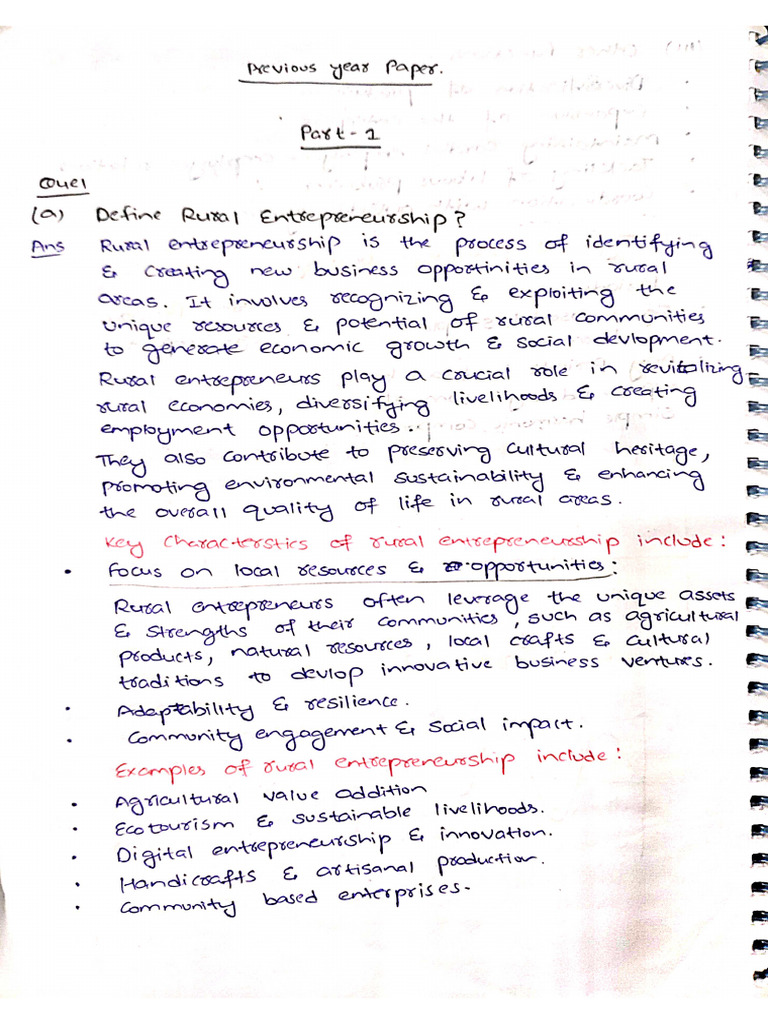 Previous year Paper.
Part-1
Que1
(a) Define Rural Entrepreneurship?
Ans Rural entrepreneurship is the process of identifying
& creating new business opportinities in rural
areas. It involves recognizing & exploiting the
unique resources & potential of rural communities
to generate economic growth & social devlopment.
Rural entrepreneurs play a crucial role in revitalizing
rural economies, diversifying livelihoods & creating
employment opportunities.
They also contribute to preserving cultural heritage,
promoting environmental sustainability & enhancing
the overall quality of life in rural areas.
Key Characterstics of rural entrepreneurship include:
• Focus on local resources & opportunities:
Rural entrepreneurs often leverage the unique assets
& strengths of their communities, such as agricultural
products, natural resources, local crafts & cultural
traditions to devlop innovative business ventures.
• Adaptability & resilience.
• Community engagement & social impact.
Examples of rural entrepreneurship include:
• Agricultural value addition
• Ecotourism & sustainable livelihoods.
• Digital entrepreneurship & innovation.
• Handicrafts & artisanal production.
• Community based enterprises.